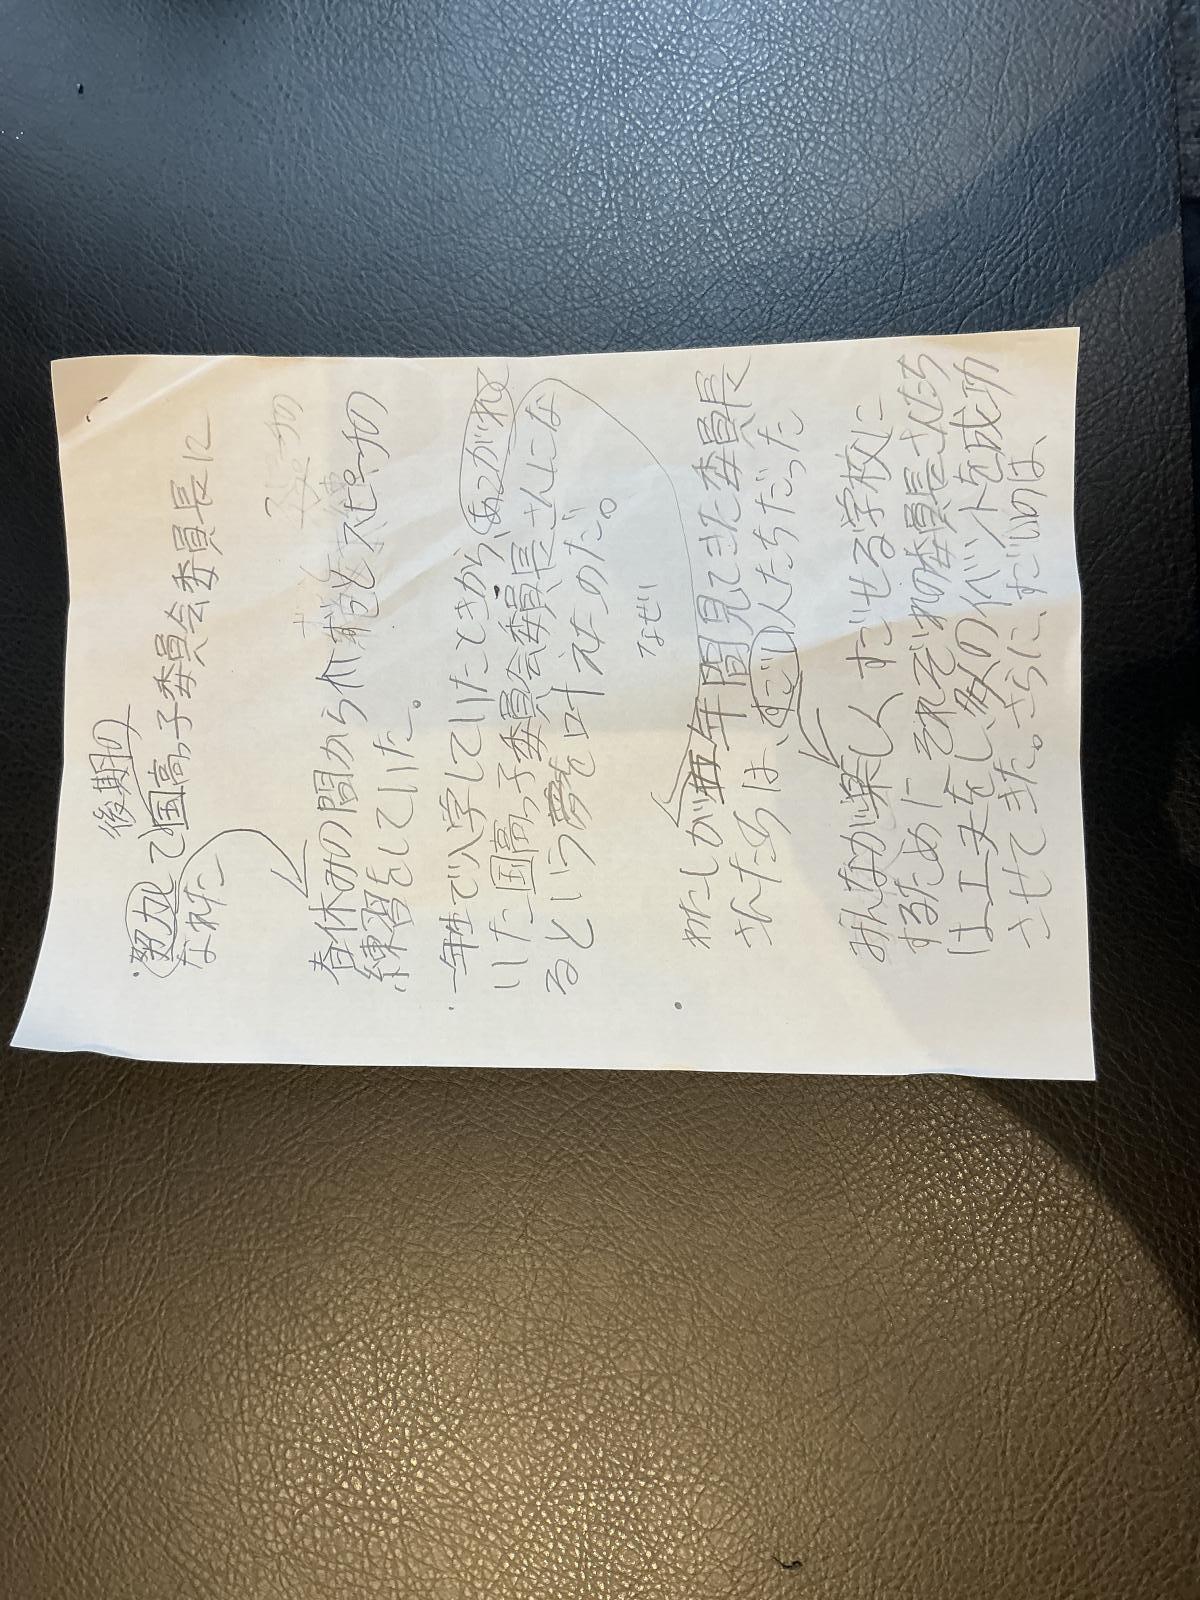 後期の
・努力して国高っ子委員会委員長に
なれた
春休みの間から介抱とスピーチの
練習をしていた。
・一年生で入学していたときから、あこがれて
いた国高っ子委員会委員長さんにな
るという夢を叶えたのだ。
なぜ
・わたしが五年間見てきた委員長
さんたちは、すごい人たちだった
みんなが楽しくすごせる学校に
するためにそれぞれの委員長さんたち
は工夫をし、多くのイベントを成功
させてきた。さらに、すごいのは、